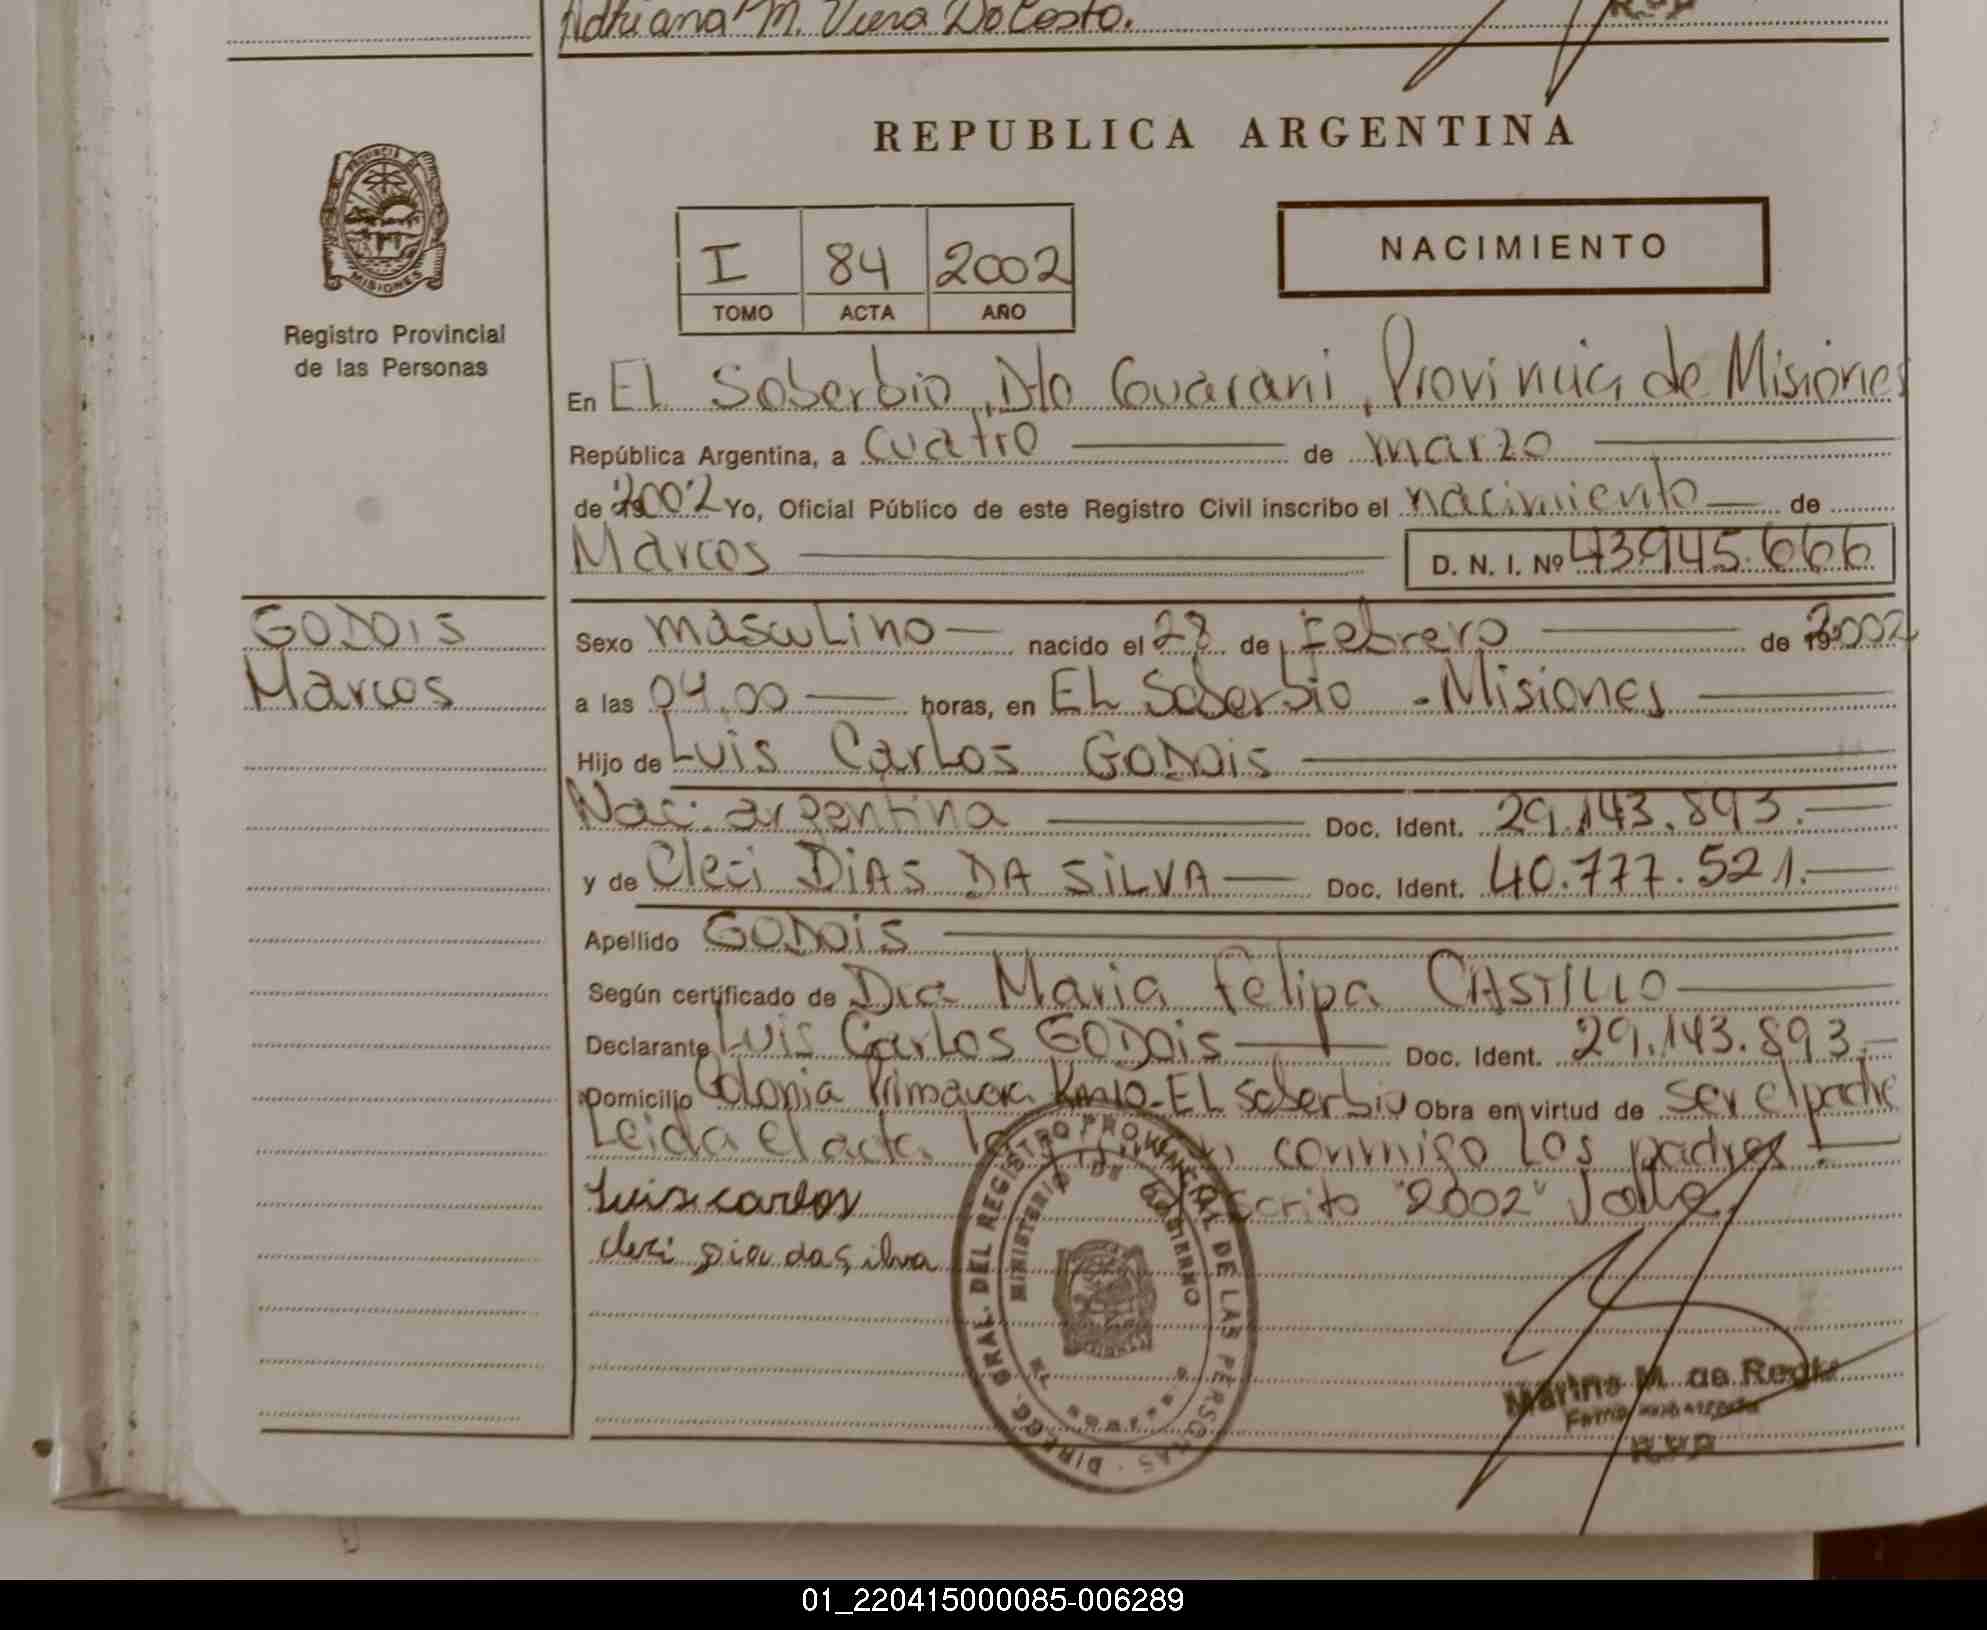 Adriana M. Viera Da Costa.
REPUBLICA ARGENTINA
PROVINCIA DE
MISIONES
Registro Provincial
de las Personas
I 84 2002
TOMO ACTA AÑO
NACIMIENTO
En El Soberbio, Dto Guarani, Provincia de Misiones
República Argentina, a cuatro de marzo
de 2002 Yo, Oficial Público de este Registro Civil inscribo el nacimiento de
Marcos D. N. I. Nº 43.945.666
GODOIS
Marcos
Sexo masculino nacido el 28 de Febrero de 2002
a las 04.00 horas, en EL Soberbio - Misiones
Hijo de Luis Carlos GODOIS
Nac. argentina Doc. Ident. 29.143.893.
y de Cleci DIAS DA SILVA Doc. Ident. 40.777.521.
Apellido GODOIS
Según certificado de Dra. Maria Felipa CASTILLO
Declarante Luis Carlos GODOIS Doc. Ident. 29.143.893.
Domicilio Colonia Primavera Km 10 - EL Soberbio Obra en virtud de ser el padre
Leida el acta conmigo Los padres
scrito "2002" Vale.
Luis carlos
cleci dia da silva
DIRECC. GRAL. DEL REGISTRO PROVINCIAL DE LAS PERSONAS
MINISTERIO DE GOBIERNO
Marina M. de
01_220415000085-006289